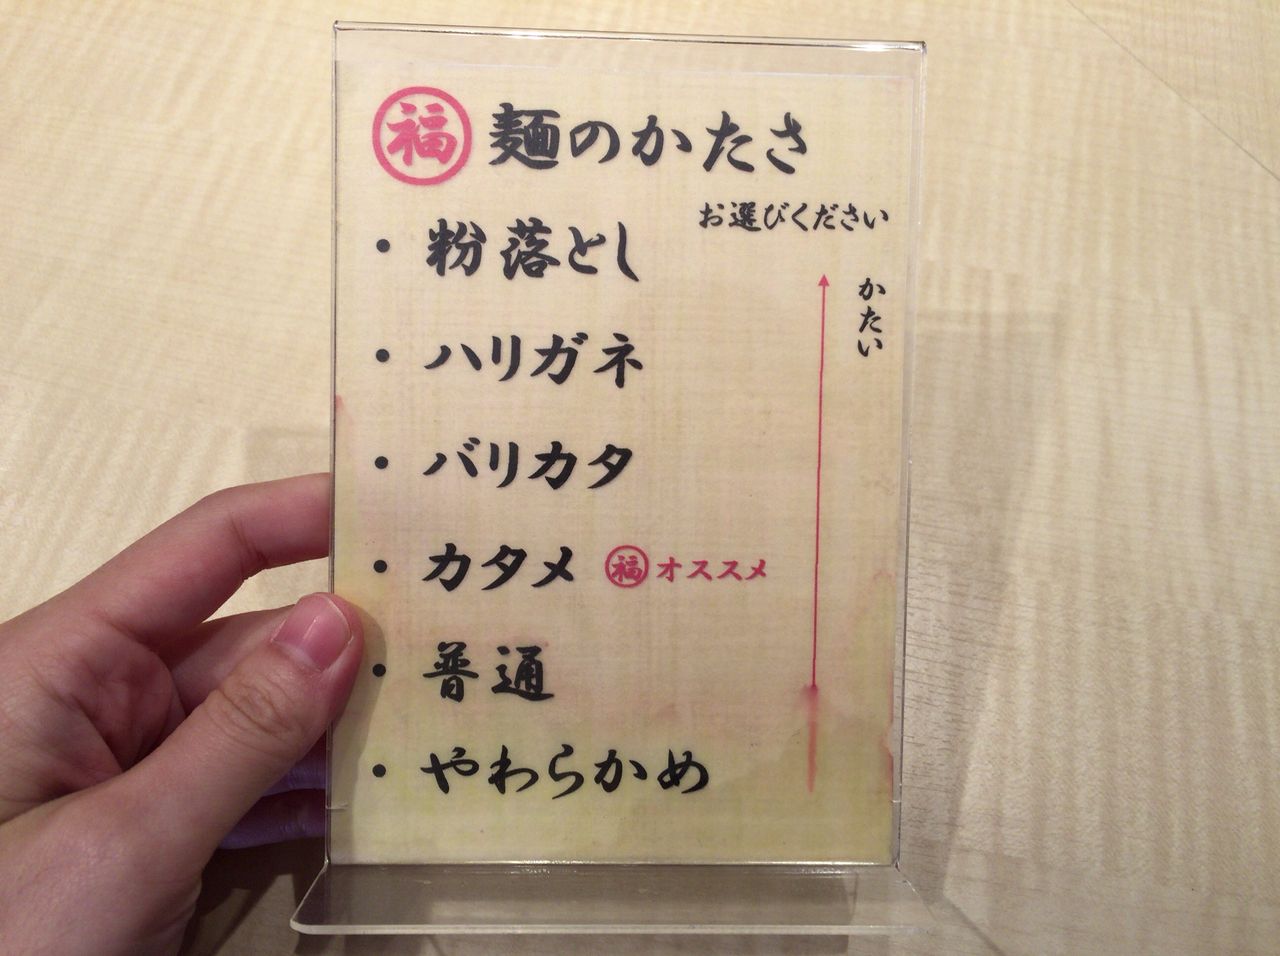 福 麺のかたさ
お選びください
かたい
・粉落とし
・ハリガネ
・バリカタ
・カタメ 福オススメ
・普通
・やわらかめ